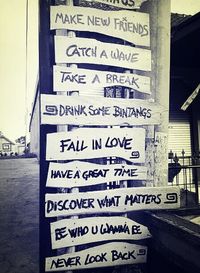 MAKE NEW FRIENDS
CATCH A WAVE
TAKE A BREAK
DRINK SOME BINTANGS
FALL IN LOVE
HAVE A GREAT TIME
DISCOVER WHAT MATTERS
BE WHO U WANNA BE
NEVER LOOK BACK